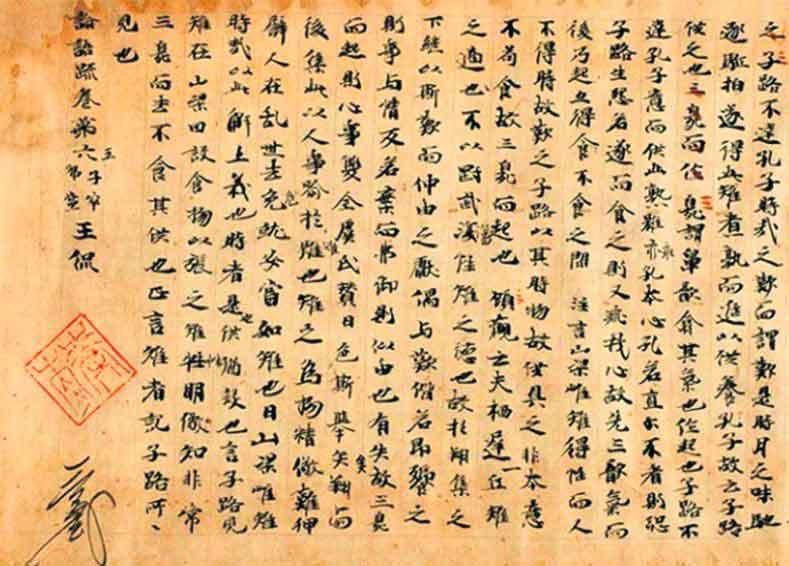 之子路不達孔子時哉之歎而謂歎是時月之味馳
逐駈拍遂得此雉者熟而進以供養孔子故云子路
供之也三臭而作臭謂鼻歆翕其氣也作起也子路不
達孔子意而供此熟雉乖孔本心孔若直尓不者則恐
子路生怨若遂而食之則又乖我心故先三歆氣而
後乃起並得食不食之間 注言山梁雌雉得性而人
不得時故歎之子路以其時物故供具之非本意
不苟食故三臭而起也 顧歡云夫栖遲一丘雉
之適也不以剛武傷性雉之德也故於翔集之
下繼以斯歎而仲由之獻偶与歎偕若即饗之
則事与情反若棄而弗御則似由也有失故三臭
而起則心事雙全虞氏賛曰色斯舉矣翔而
後集此以人事喻於雉也雉之為物精儆難狎
譬人在乱世去危就安當如雉也曰山梁雌雉
時哉以此解上義也時者是也供猶設也言子路見
雉在山梁因設食物以張之雉性明儆知非常
三臭而去不食其供也正言雌者記子路所
見也
論語疏卷第六 王侃